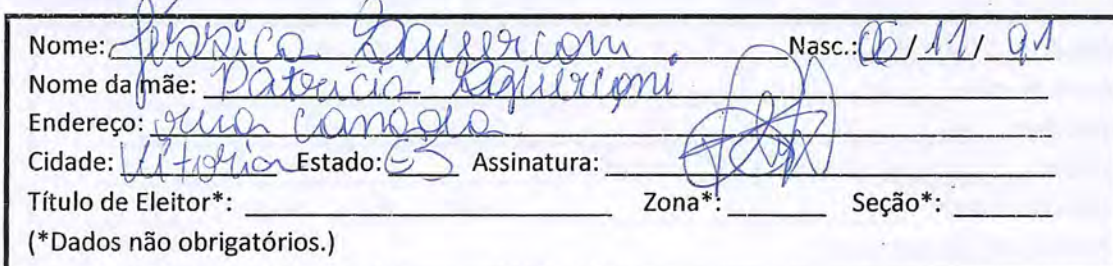 Nome: Jéssica Nasc.: 06/11/91
Nome da mãe: Patrícia
Endereço: rua Canada
Cidade: Vitoria Estado: ES Assinatura:
Título de Eleitor*: Zona*: Seção*:
(*Dados não obrigatórios.)